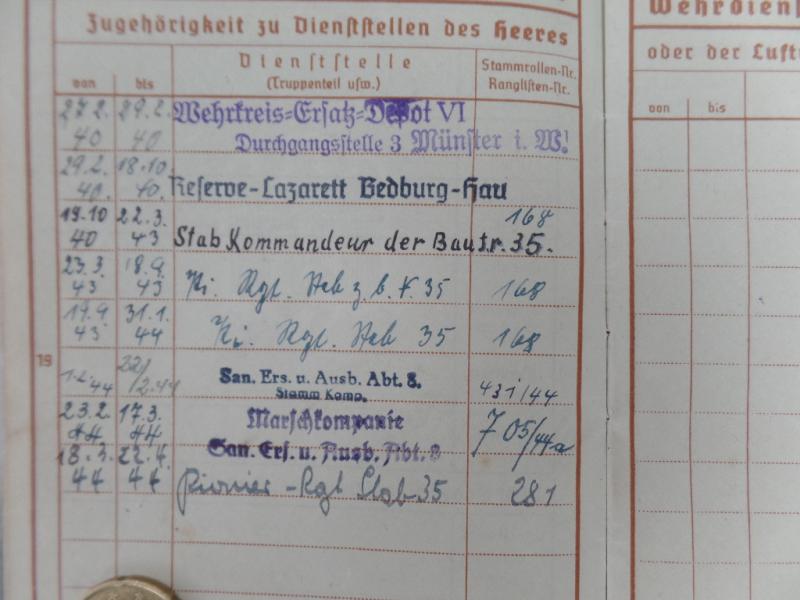 Zugehörigkeit zu Dienststellen des Heeres
Dienststelle
(Truppenteil usw.)
Stammrollen-Nr.
Ranglisten-Nr.
von bis
27.2. 29.2. Wehrkreis-Ersatz-Depot VI
40 40 Durchgangsstelle 3 Münster i. W.
29.2. 18.10.
40. 40. Reserve-Lazarett Bedburg-Hau
19.10 22.3. 168
40 43 Stab Kommandeur der Bautr. 35.
23.3. 18.9.
43 43 Pi. Rgt. Stab z.b.V. 35 168
19.9. 31.1.
43 44 Pi. Rgt. Stab 35 168
19
1.2. 44 22/2.44 San. Ers. u. Ausb. Abt. 8. 431/44
Stamm Komp.
23.2. 17.3. Marschkompanie
44 44 San. Ers. u. Ausb. Abt. 8 705/44a
18.3. 22.4.
44 44 Pionier-Rgt Stab 35 281
oder der Luft
von bis